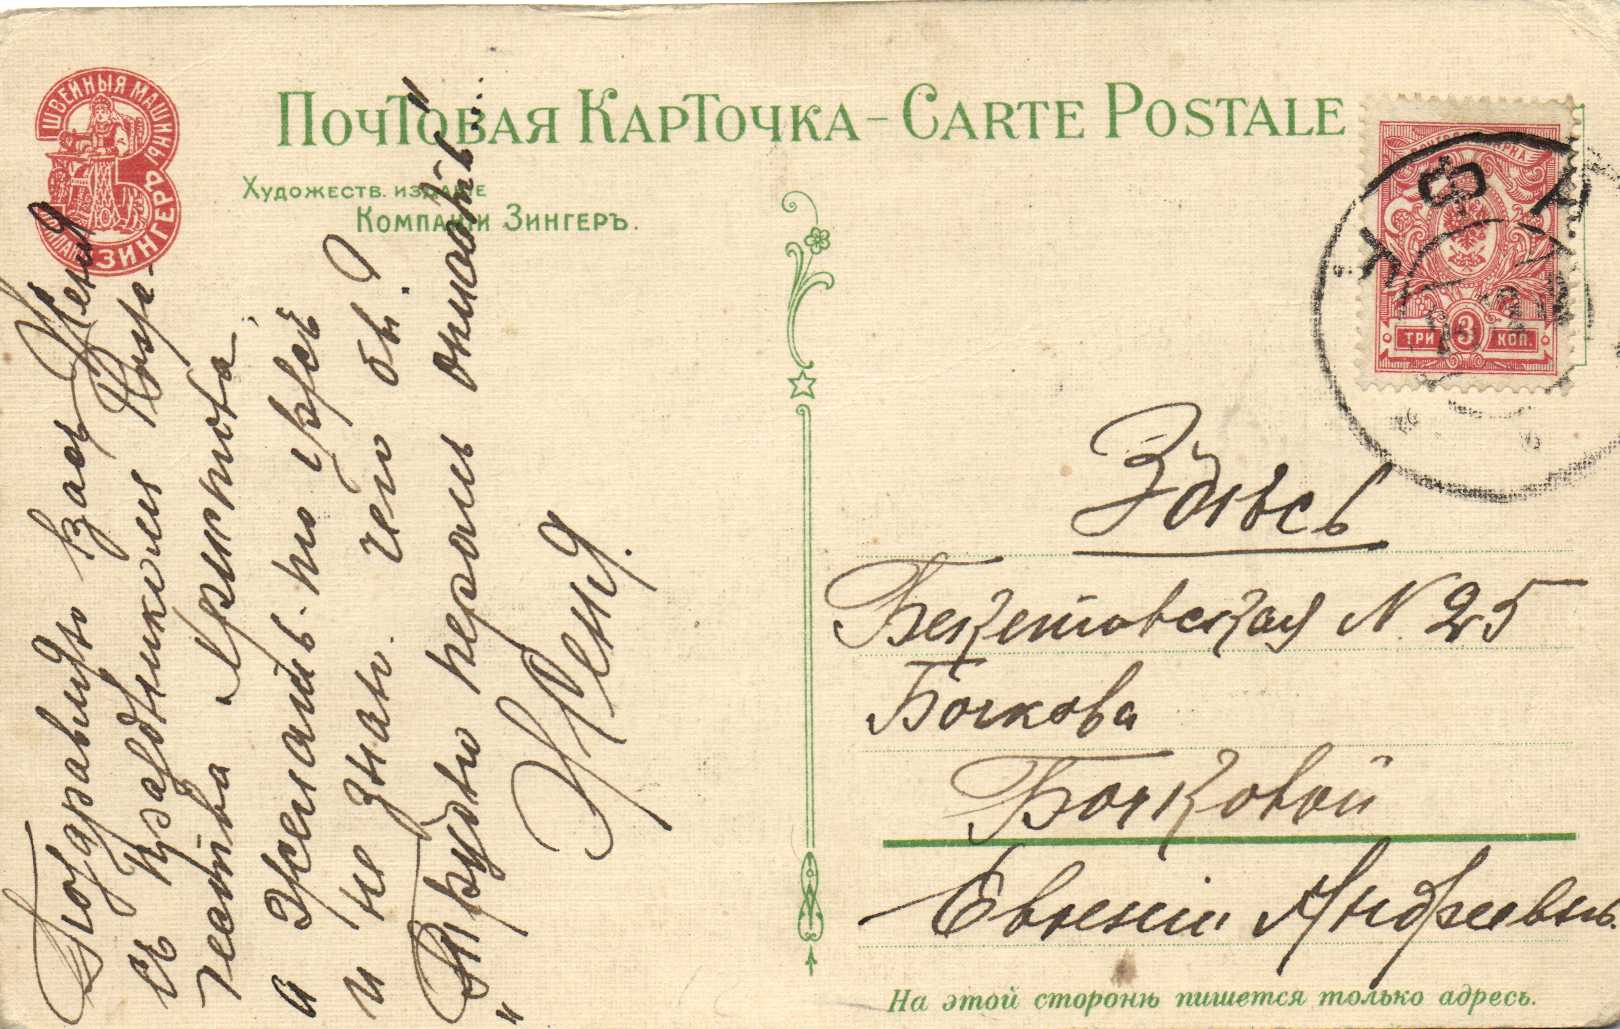 ШВЕЙНЫЯ МАШИНЫ
КОМПАНІИ ЗИНГЕРЪ
ПОЧТОВАЯ КАРТОЧКА - CARTE POSTALE
ХУДОЖЕСТВ. ИЗДАНІЕ
КОМПАНІИ ЗИНГЕРЪ.
ТРИ 3 КОП.
Поздравляю Васъ Женя
съ праздникомъ Рож-
чества Христова,
а желать-то прсъ
и не знаю. Чего бы?
"Трудно перомъ описать"...
Женя.
Здѣсь
Бекетовская N. 25
Бочкова
Бочковой
Евгеніи Андреевнѣ.
На этой сторонѣ пишется только адресъ.